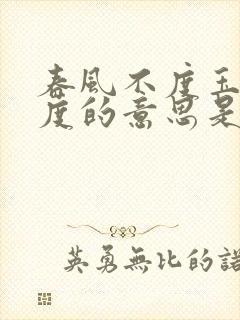 春風不度玉
度的意思是
英勇無比的諾